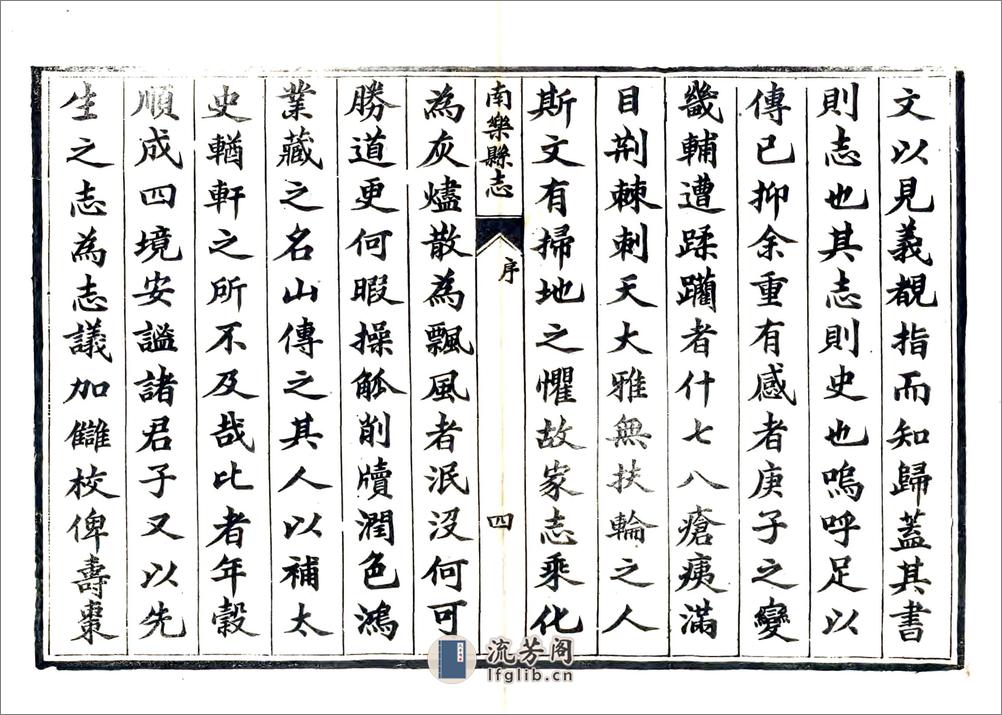 文以見義覩指而知歸蓋其書
則志也其志則史也嗚呼足以
傳已抑余重有感者庚子之變
畿輔遭蹂躪者什七八瘡痍滿
目荆棘刺天大雅無扶輪之人
斯文有掃地之懼故家志乘化
南樂縣志
序
四
為灰燼散為飄風者泯沒何可
勝道更何暇操觚削牘潤色鴻
業藏之名山傳之其人以補太
史輶軒之所不及哉比者年穀
順成四境安謐諸君子又以先
生之志為志議加讎校俾壽棗
流芳阁
lfglib.cn